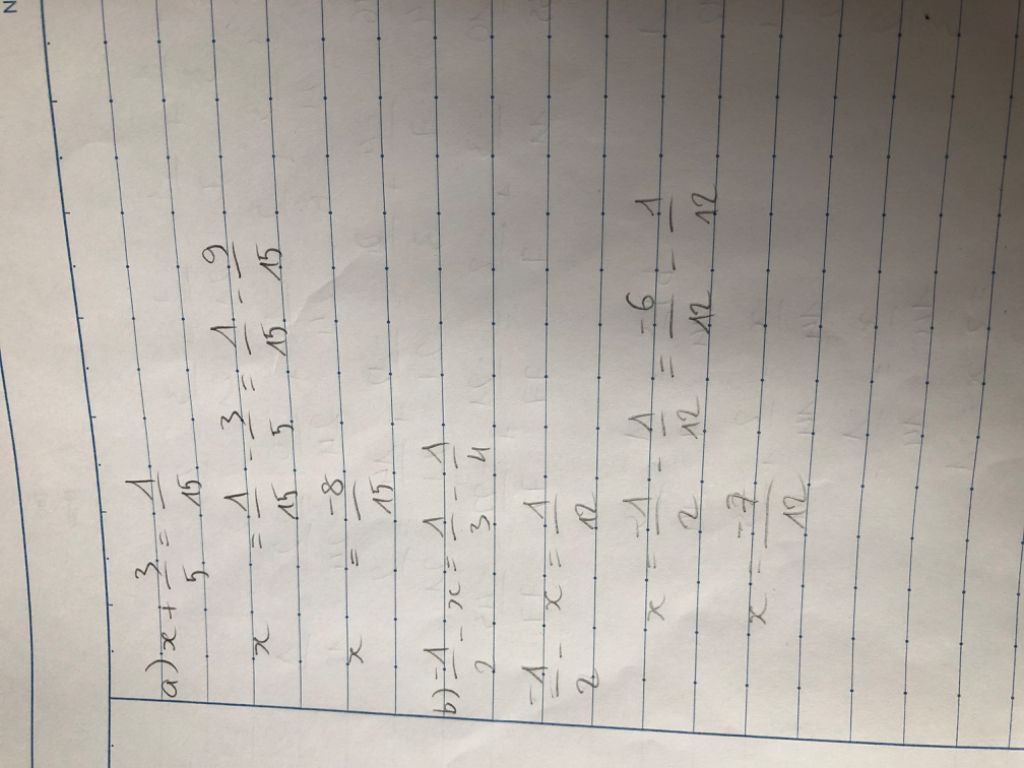 a) x + 3/5 = 1/15
x = 1/15 - 3/5 = 1/15 - 9/15
x = -8/15
b) -1/2 - x = 1/3 - 1/4
-1/2 - x = 1/12
x = -1/2 - 1/12 = -6/12 - 1/12
x = -7/12